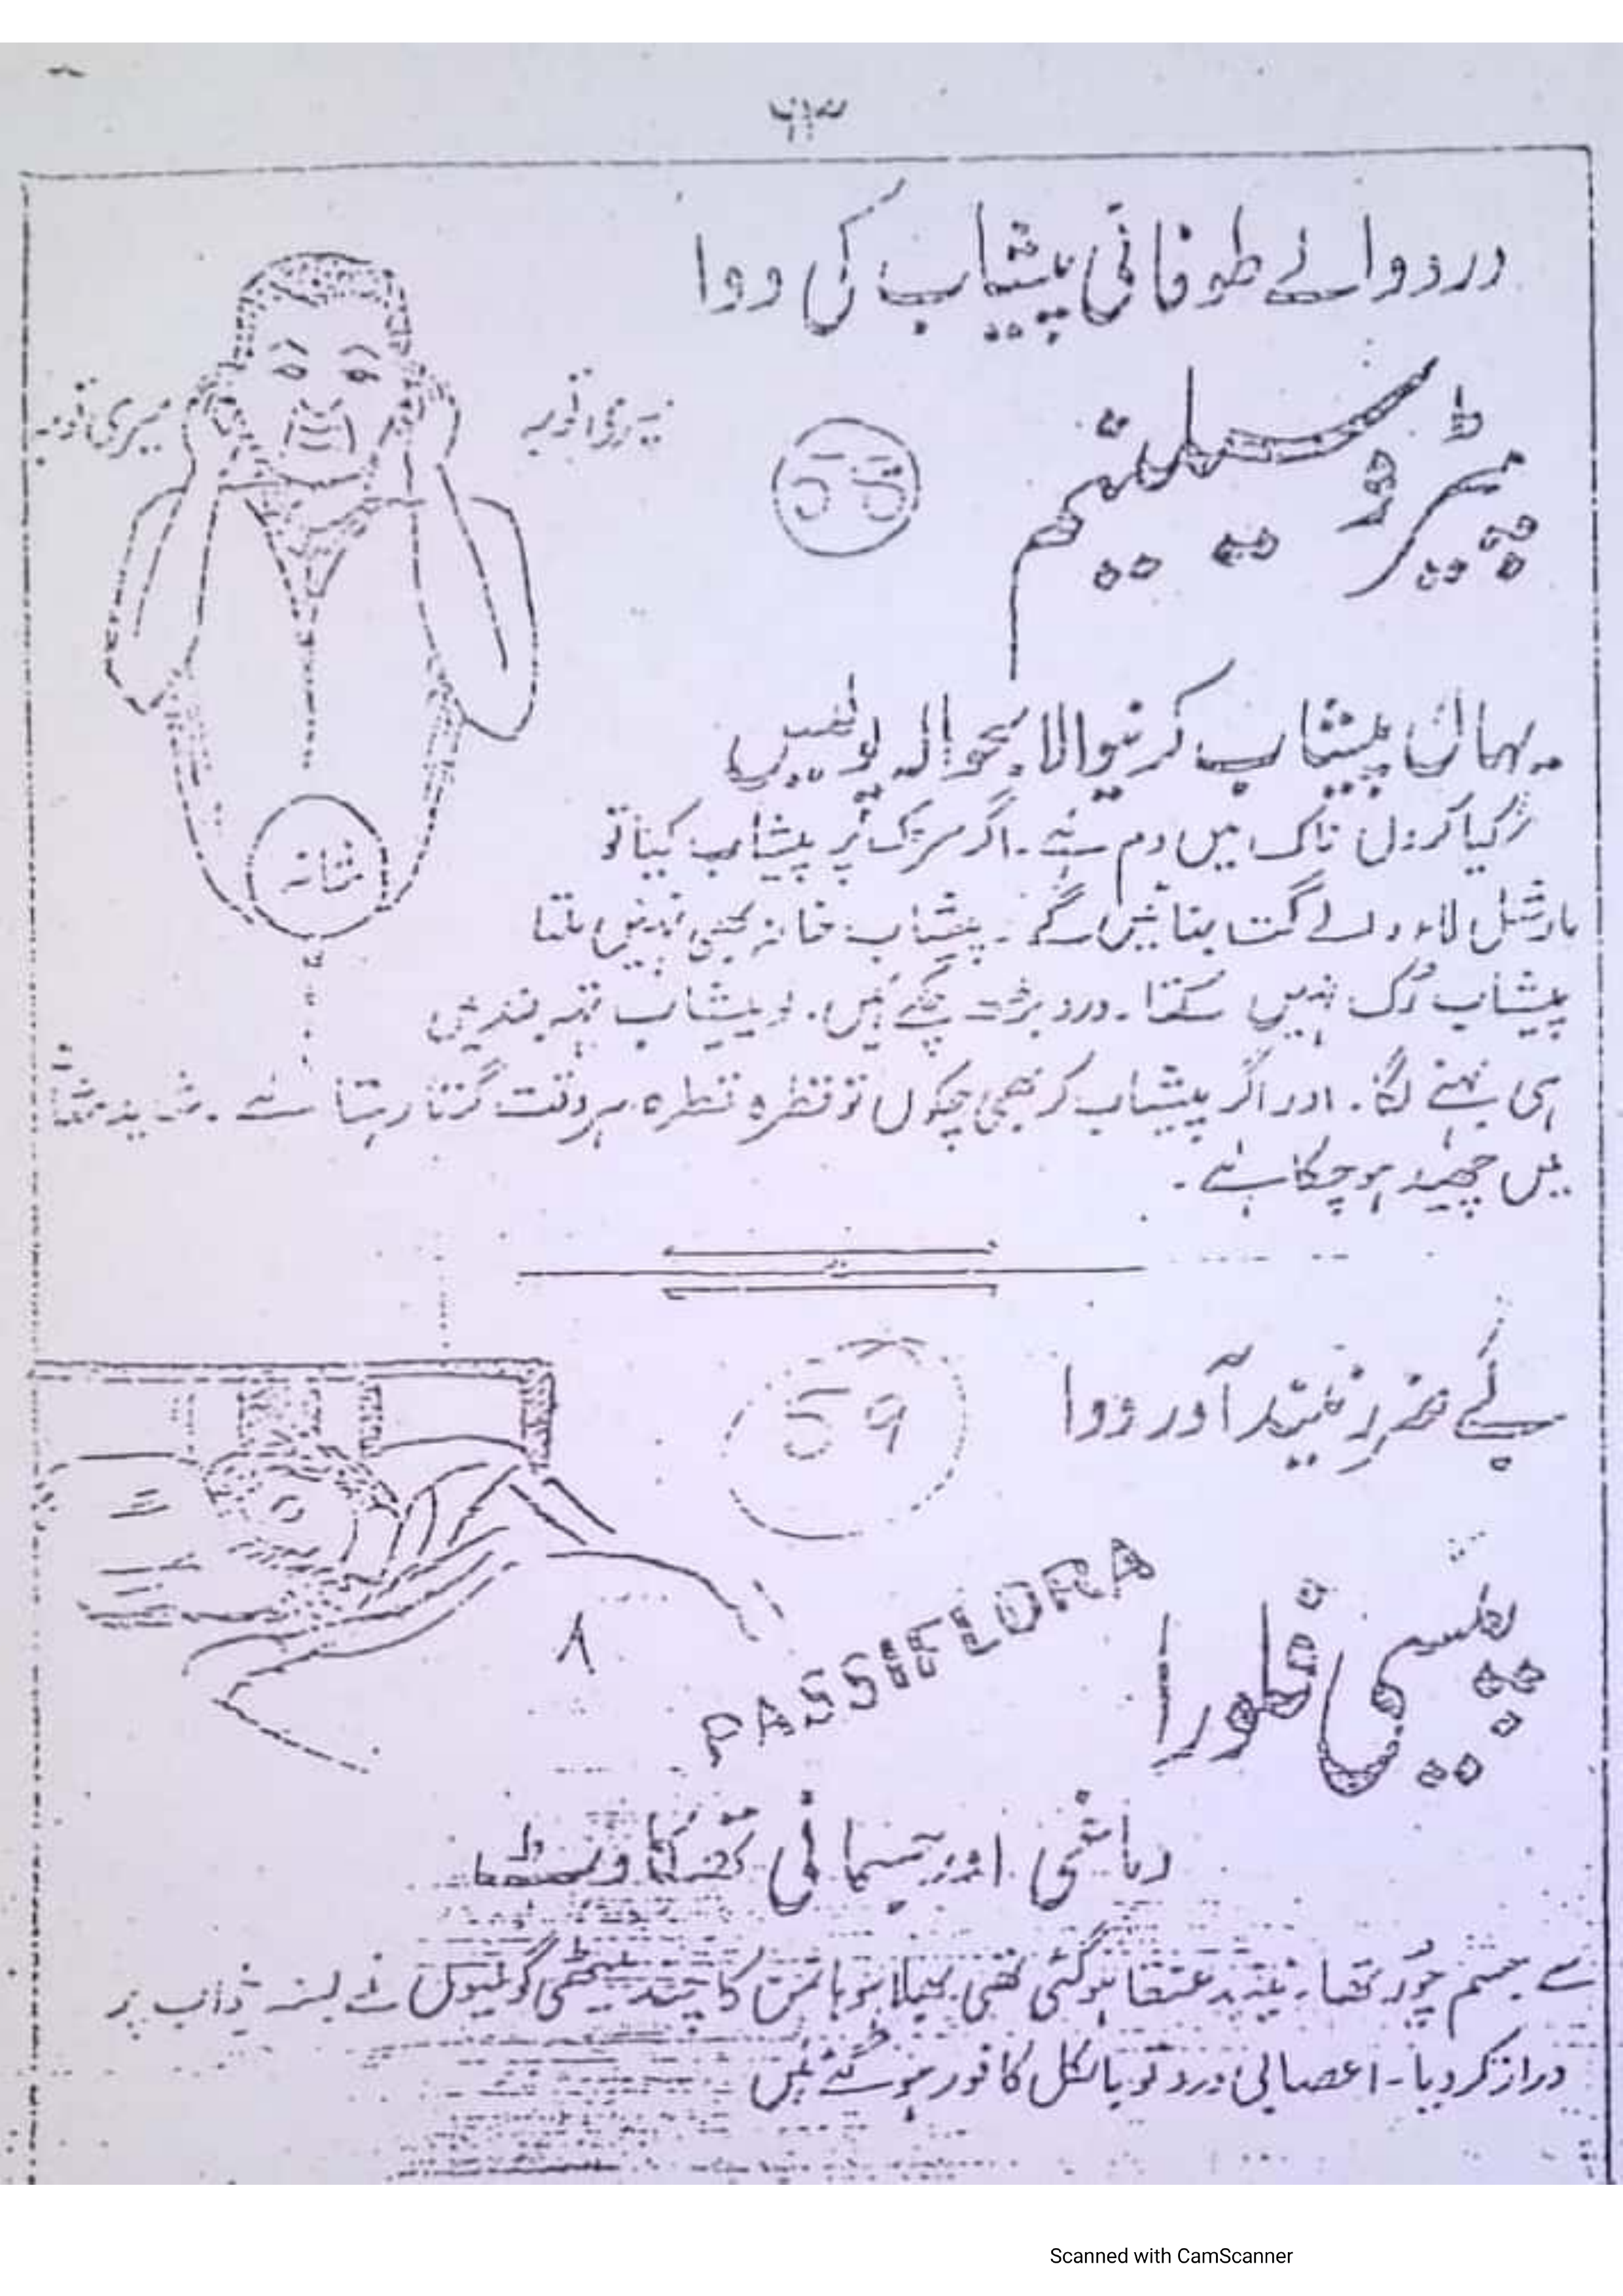 ۶۳
درد والے طوفانی پیشاب کی دوا
میری توبہ
میری توبہ
پیٹروسیلینیم
یہاں پیشاب کرنیوالا بحوالہ پولیس
کیا کروں ناک میں دم ہے۔ اگر سڑک پر پیشاب کیا تو
مارشل لاء والے گت بنائیں گے۔ پیشاب خانہ بھی نہیں ملتا
پیشاب رک نہیں سکتا۔ درد بڑھ چکے ہیں۔ پیشاب تہہ بند میں
ہی بہنے لگا۔ اور اگر پیشاب کر بھی چکوں تو قطرہ قطرہ ہر وقت گرتا رہتا ہے۔ شاید مثانہ
میں چھید ہو چکا ہے۔
مثانہ
بے ضرر نیند آور دوا
59
PASSIFLORA
پیسی فلورا
دماغی اور جسمانی تھکاوٹ
سے جسم چور تھا۔ نیند عنقا ہو گئی تھی بھلا ہو ہانمن کا چند میٹھی گولیوں نے بستر پر
دراز کر دیا۔ اعصابی درد تو بالکل کافور ہو گئے ہیں
Scanned with CamScanner